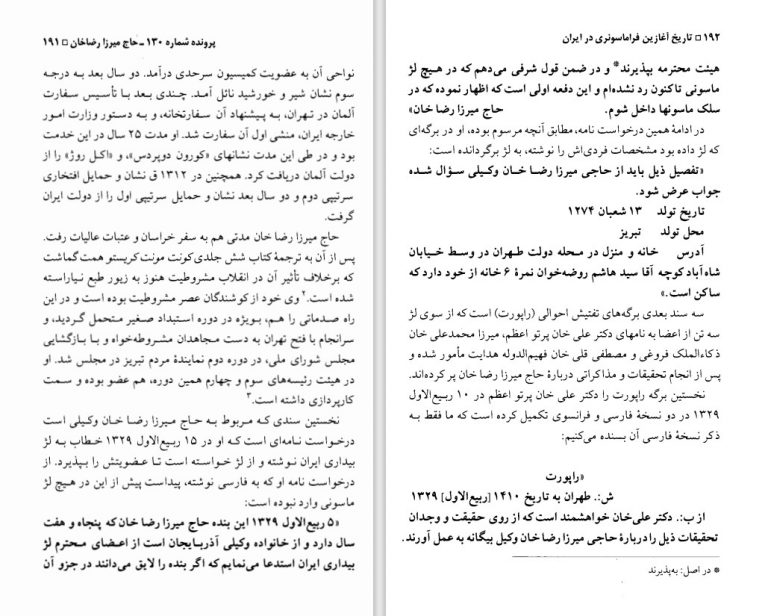 پرونده شماره ۱۳۰ - حاج میرزا رضاخان □ ۱۹۱
نواحی آن به عضویت کمیسیون سرحدی درآمد. دو سال بعد به درجه
سوم نشان شیر و خورشید نائل آمد. چندی بعد با تأسیس سفارت
آلمان در تهران، به پیشنهاد آن سفارتخانه، و به دستور وزارت امور
خارجه ایران، منشی اول آن سفارت شد. او مدت ۲۵ سال در این خدمت
بود و در طی این مدت نشانهای «کورون دوپردس»، و «اکل روژ» را از
دولت آلمان دریافت کرد. همچنین در ۱۳۱۲ ق نشان و حمایل افتخاری
سرتیپی دوم و دو سال بعد نشان و حمایل سرتیپی اول را از دولت ایران
گرفت.
حاج میرزا رضا خان مدتی هم به سفر خراسان و عتبات عالیات رفت.
پس از آن به ترجمهٔ کتاب شش جلدی کونت مونت کریستو همت گماشت
که برخلاف تأثیر آن در انقلاب مشروطیت هنوز به زیور طبع نیاراسته
شده است.۲ وی خود از کوشندگان عصر مشروطیت بوده است و در این
راه صدماتی را هم، بویژه در دوره استبداد صغیر متحمل گردید، و
سرانجام با فتح تهران به دست مجاهدان مشروطه‌خواه و با بازگشایی
مجلس شورای ملی، در دوره دوم نمایندهٔ مردم تبریز در مجلس شد. او
در هیئت رئیسه‌های سوم و چهارم همین دوره، هم عضو بوده و سمت
کارپردازی داشته است.۳
نخستین سندی که مربوط به حاج میرزا رضا خان وکیلی است
درخواست نامه‌ای است که او در ۱۵ ربیع‌الاول ۱۳۲۹ خطاب به لژ
بیداری ایران نوشته و از لژ خواسته است تا عضویتش را بپذیرد. از
درخواست نامه او که به فارسی نوشته، پیداست پیش از این در هیچ لژ
ماسونی وارد نبوده است:
«۵ ربیع‌الاول ۱۳۲۹ این بنده حاج میرزا رضا خان که پنجاه و هفت
سال دارد و از خانواده وکیلی آذربایجان است از اعضای محترم لژ
بیداری ایران استدعا می‌نمایم که اگر بنده را لایق می‌دانند در جزو آن
۱۹۲ □ تاریخ آغازین فراماسونری در ایران
هیئت محترمه بپذیرند* و در ضمن قول شرفی می‌دهم که در هیچ لژ
ماسونی تاکنون رد نشده‌ام و این دفعه اولی است که اظهار نموده که در
سلک ماسونها داخل شوم. حاج میرزا رضا خان»
در ادامهٔ همین درخواست نامه، مطابق آنچه مرسوم بوده، او در برگه‌ای
که لژ داده بود مشخصات فردی‌اش را نوشته، به لژ برگردانده است:
«تفصیل ذیل باید از حاجی میرزا رضا خان وکیلی سؤال شده
جواب عرض شود.
تاریخ تولد ۱۳ شعبان ۱۲۷۴
محل تولد تبریز
آدرس خانه و منزل در محله دولت طهران در وسط خیابان
شاه‌آباد کوچه آقا سید هاشم روضه‌خوان نمرهٔ ۶ خانه از خود دارد که
ساکن است.»
سه سند بعدی برگه‌های تفتیش احوالی (راپورت) است که از سوی لژ
سه تن از اعضا به نامهای دکتر علی خان پرتو اعظم، میرزا محمدعلی خان
ذکاءالملک فروغی و مصطفی قلی خان فهیم‌الدوله هدایت مأمور شده و
پس از انجام تحقیقات و مذاکراتی دربارهٔ حاج میرزا رضا خان پر کرده‌اند.
نخستین برگه راپورت را دکتر علی خان پرتو اعظم در ۱۰ ربیع‌الاول
۱۳۲۹ در دو نسخهٔ فارسی و فرانسوی تکمیل کرده است که ما فقط به
ذکر نسخهٔ فارسی آن بسنده می‌کنیم:
«راپورت
ش:. طهران به تاریخ ۱۴۱۰ [ربیع‌الاول] ۱۳۲۹
از ب:. دکتر علی‌خان خواهشمند است که از روی حقیقت و وجدان
تحقیقات ذیل را دربارهٔ حاجی میرزا رضا خان وکیل بیگانه به عمل آورند.
* در اصل: به‌پذیرند